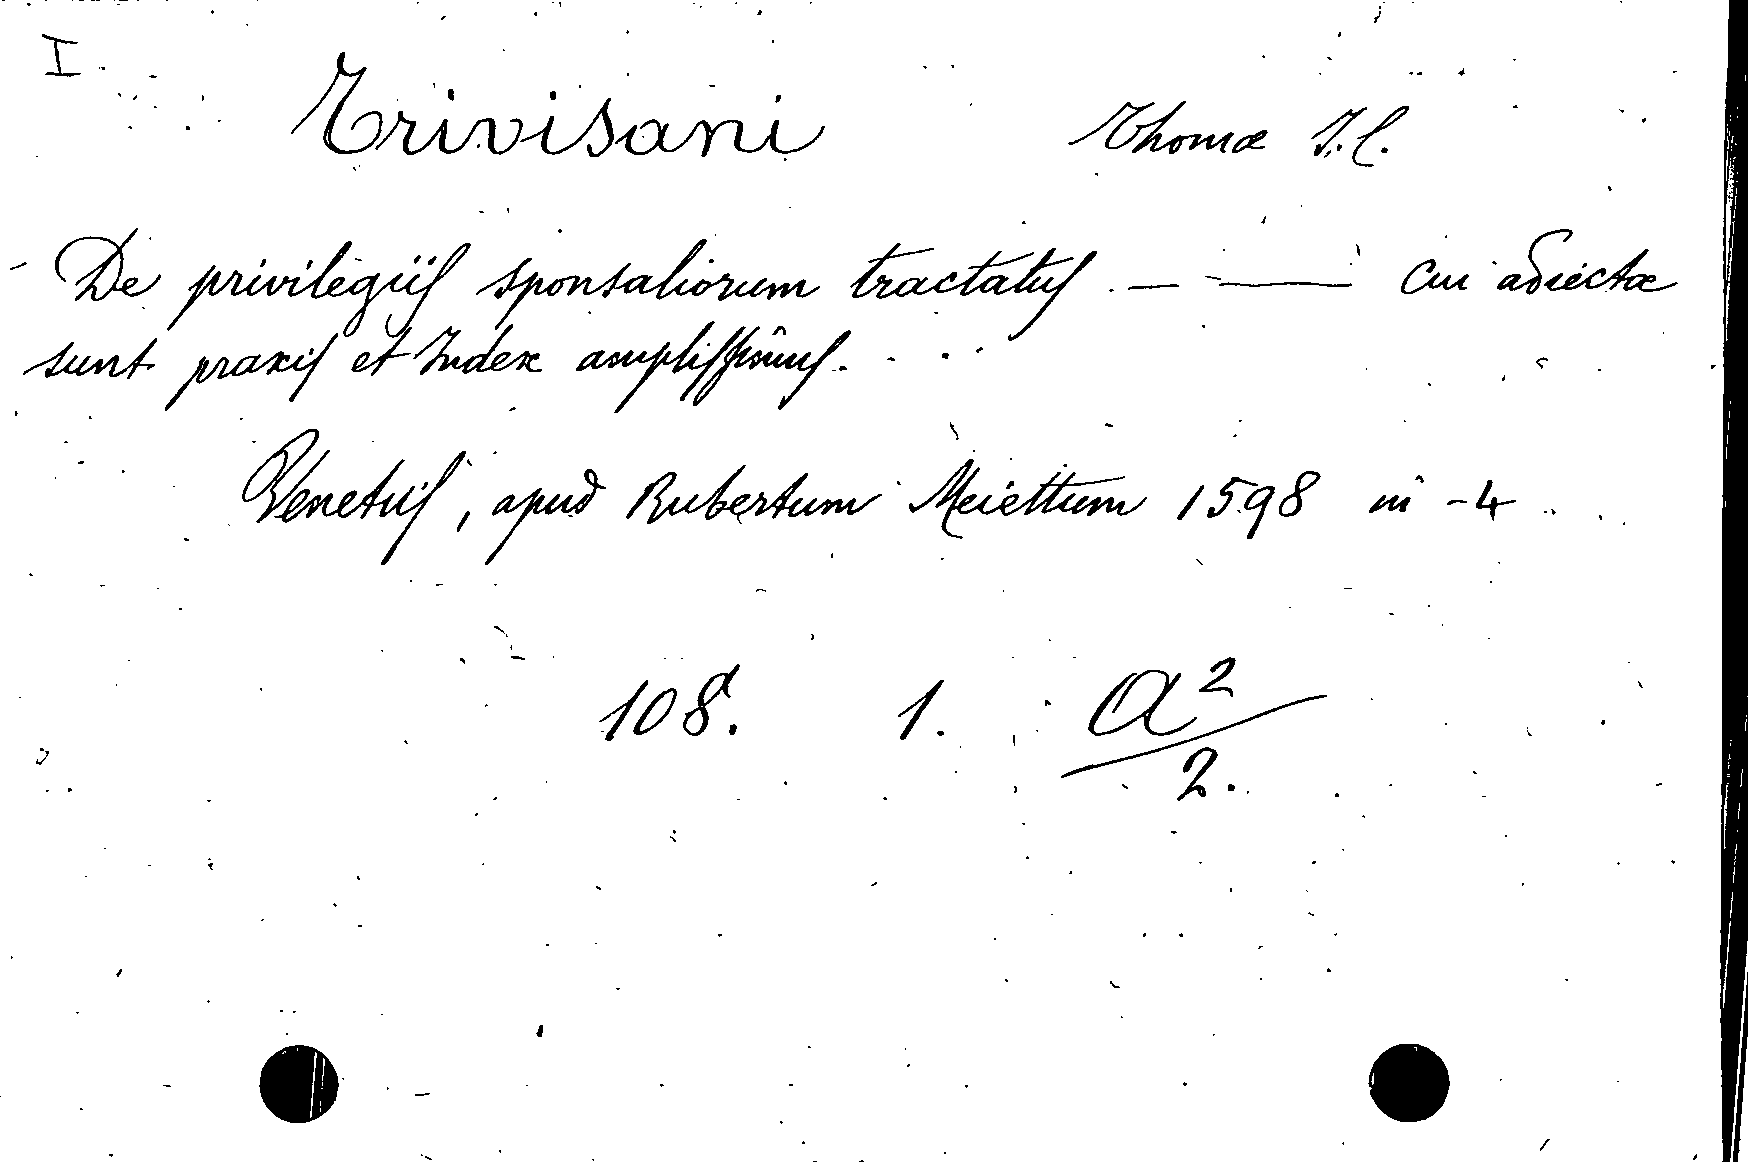 I
Trivisani Thomæ J.C.
De privilegiis sponsaliorum tractatus — — cui adiectæ
sunt praxis et Index amplissimus.
Venetiis, apud Rubertum Meiettum 1598 in -4
108d. 1. a2
2.